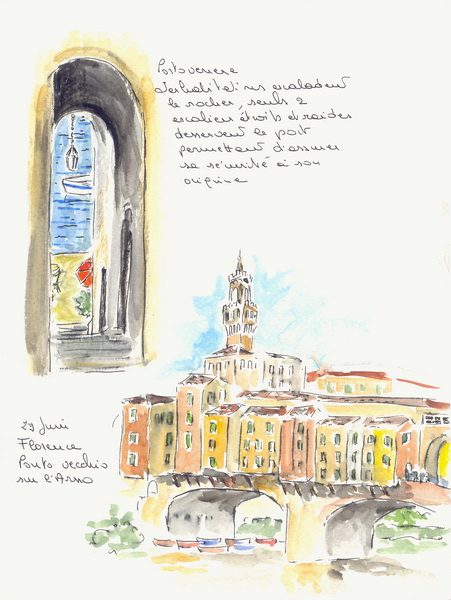 Portovenere
Les habitations escaladent
le rocher, seuls 2
escaliers étroits et raides
desservent le port
permettant d'assurer
sa sécurité à son
origine
29 Juin
Florence
Ponto vecchio
sur l'Arno